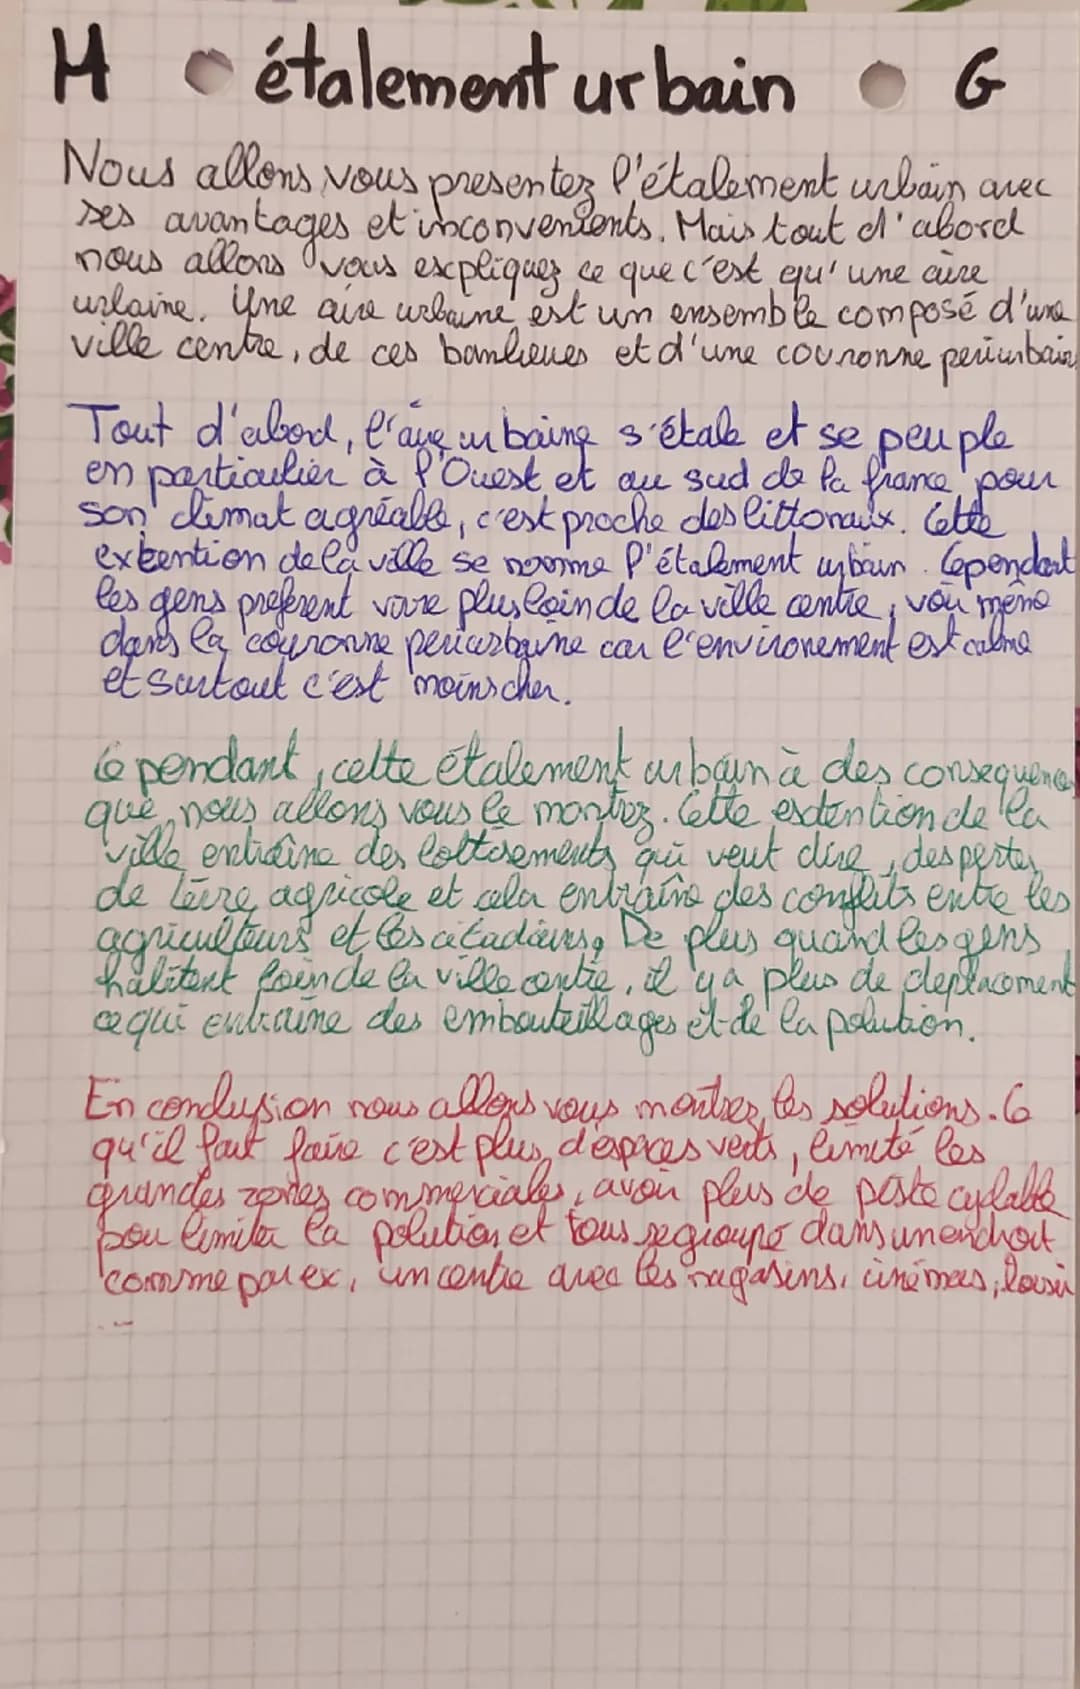 H étalement urbain G
Nous allons vous presentez l'étalement urbain avec
ses avantages et inconvenients. Mais tout d'abord
nous allons vous escpliquez ce que c'est qu'une aire
urbaine. Une aire urbaine est un ensemble composé d'une
ville centre, de ces banlieues et d'une couronne periurbain
Tout d'abord, l'aire urbaine s'étale et se peuple
en particulier à l'Ouest et au sud de la france pour
son climat agréable, c'est proche des littoraux. Cette
extention de la ville se nomme l'étalement urbain. Cependant
les gens preferent vivre plus loin de la ville centre, voir même
dans la couronne periurbaine car l'environement est calme
et surtout c'est moins cher.
Cependant, cette étalement urbain à des consequences
que nous allons vous le montrez. Cette esctention de la
ville entraîne des lottisements qui veut dire, des pertes
de terre agricole et cela entraîne des conflits entre les
agriculteurs et les citadains. De plus quand les gens
habitent loin de la ville centre, il y a plus de deplacement
ce qui entraîne des embouteillages et de la polution.
En conclusion nous allons vous montrez les solutions. Ce
qu'il faut faire c'est plus d'espaces verts, limité les
grandes zones commerciales, avoir plus de piste cyclable
pour limiter la polution et tous regroupé dans un endroit
comme par ex, un centre avec les magasins, cinémas, loisir
...